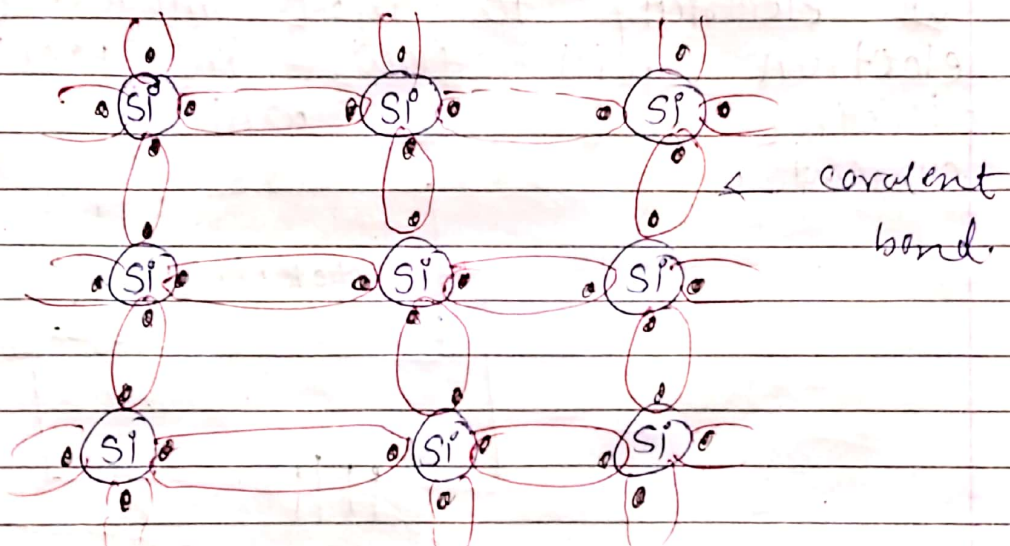 Si Si Si
covalent
bond.
Si Si Si
Si Si Si